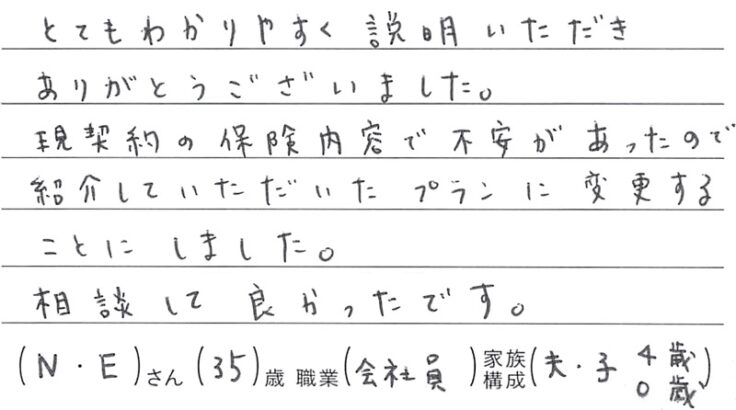 とてもわかりやすく説明いただき
ありがとうございました。
現契約の保険内容で不安があったので
紹介していただいたプランに変更する
ことにしました。
相談して良かったです。
(N・E)さん(35)歳 職業(会社員)家族構成(夫・子 4歳 0歳)